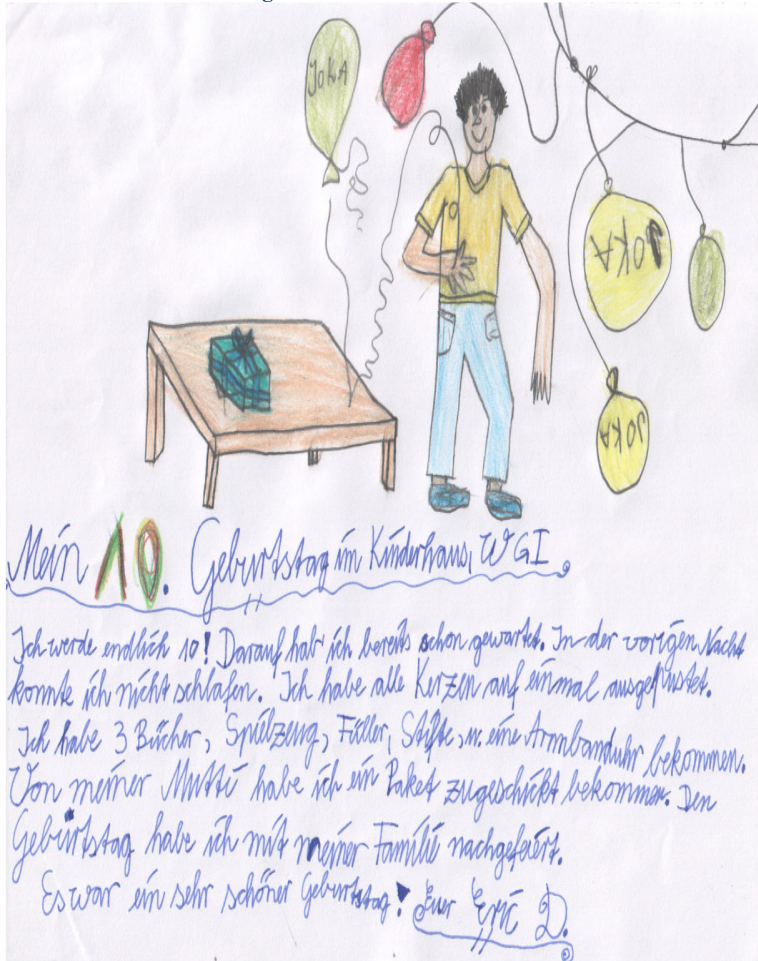 JOKA
JOKA
JOKA
Mein 10. Geburtstag im Kinderhaus, WG I.
Ich werde endlich 10! Darauf hab' ich bereits schon gewartet. In der vorigen Nacht
konnte ich nicht schlafen. Ich habe alle Kerzen auf einmal ausgepustet.
Ich habe 3 Bücher, Spielzeug, Füller, Stifte, u. eine Armbanduhr bekommen.
Von meiner Mutti habe ich ein Paket zugeschickt bekommen. Den
Geburtstag habe ich mit meiner Familie nachgefeiert.
Es war ein sehr schöner Geburtstag! Euer Eric D.